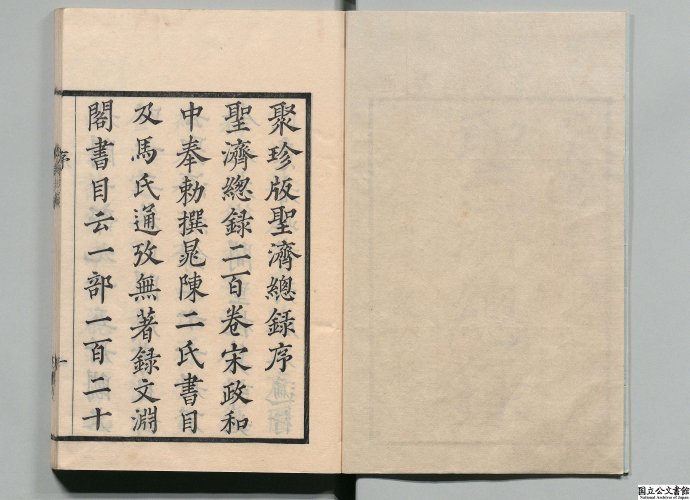 聚珍版聖濟總録序
聖濟總録二百卷宋政和
中奉勅撰晁陳二氏書目
及馬氏通攷無著録文淵
閣書目云一部一百二十
序
一
国立公文書館
National Archives of Japan